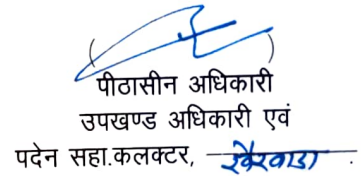 पीठासीन अधिकारी
उपखण्ड अधिकारी एवं
पदेन सहा.कलक्टर, खैरवाडा .